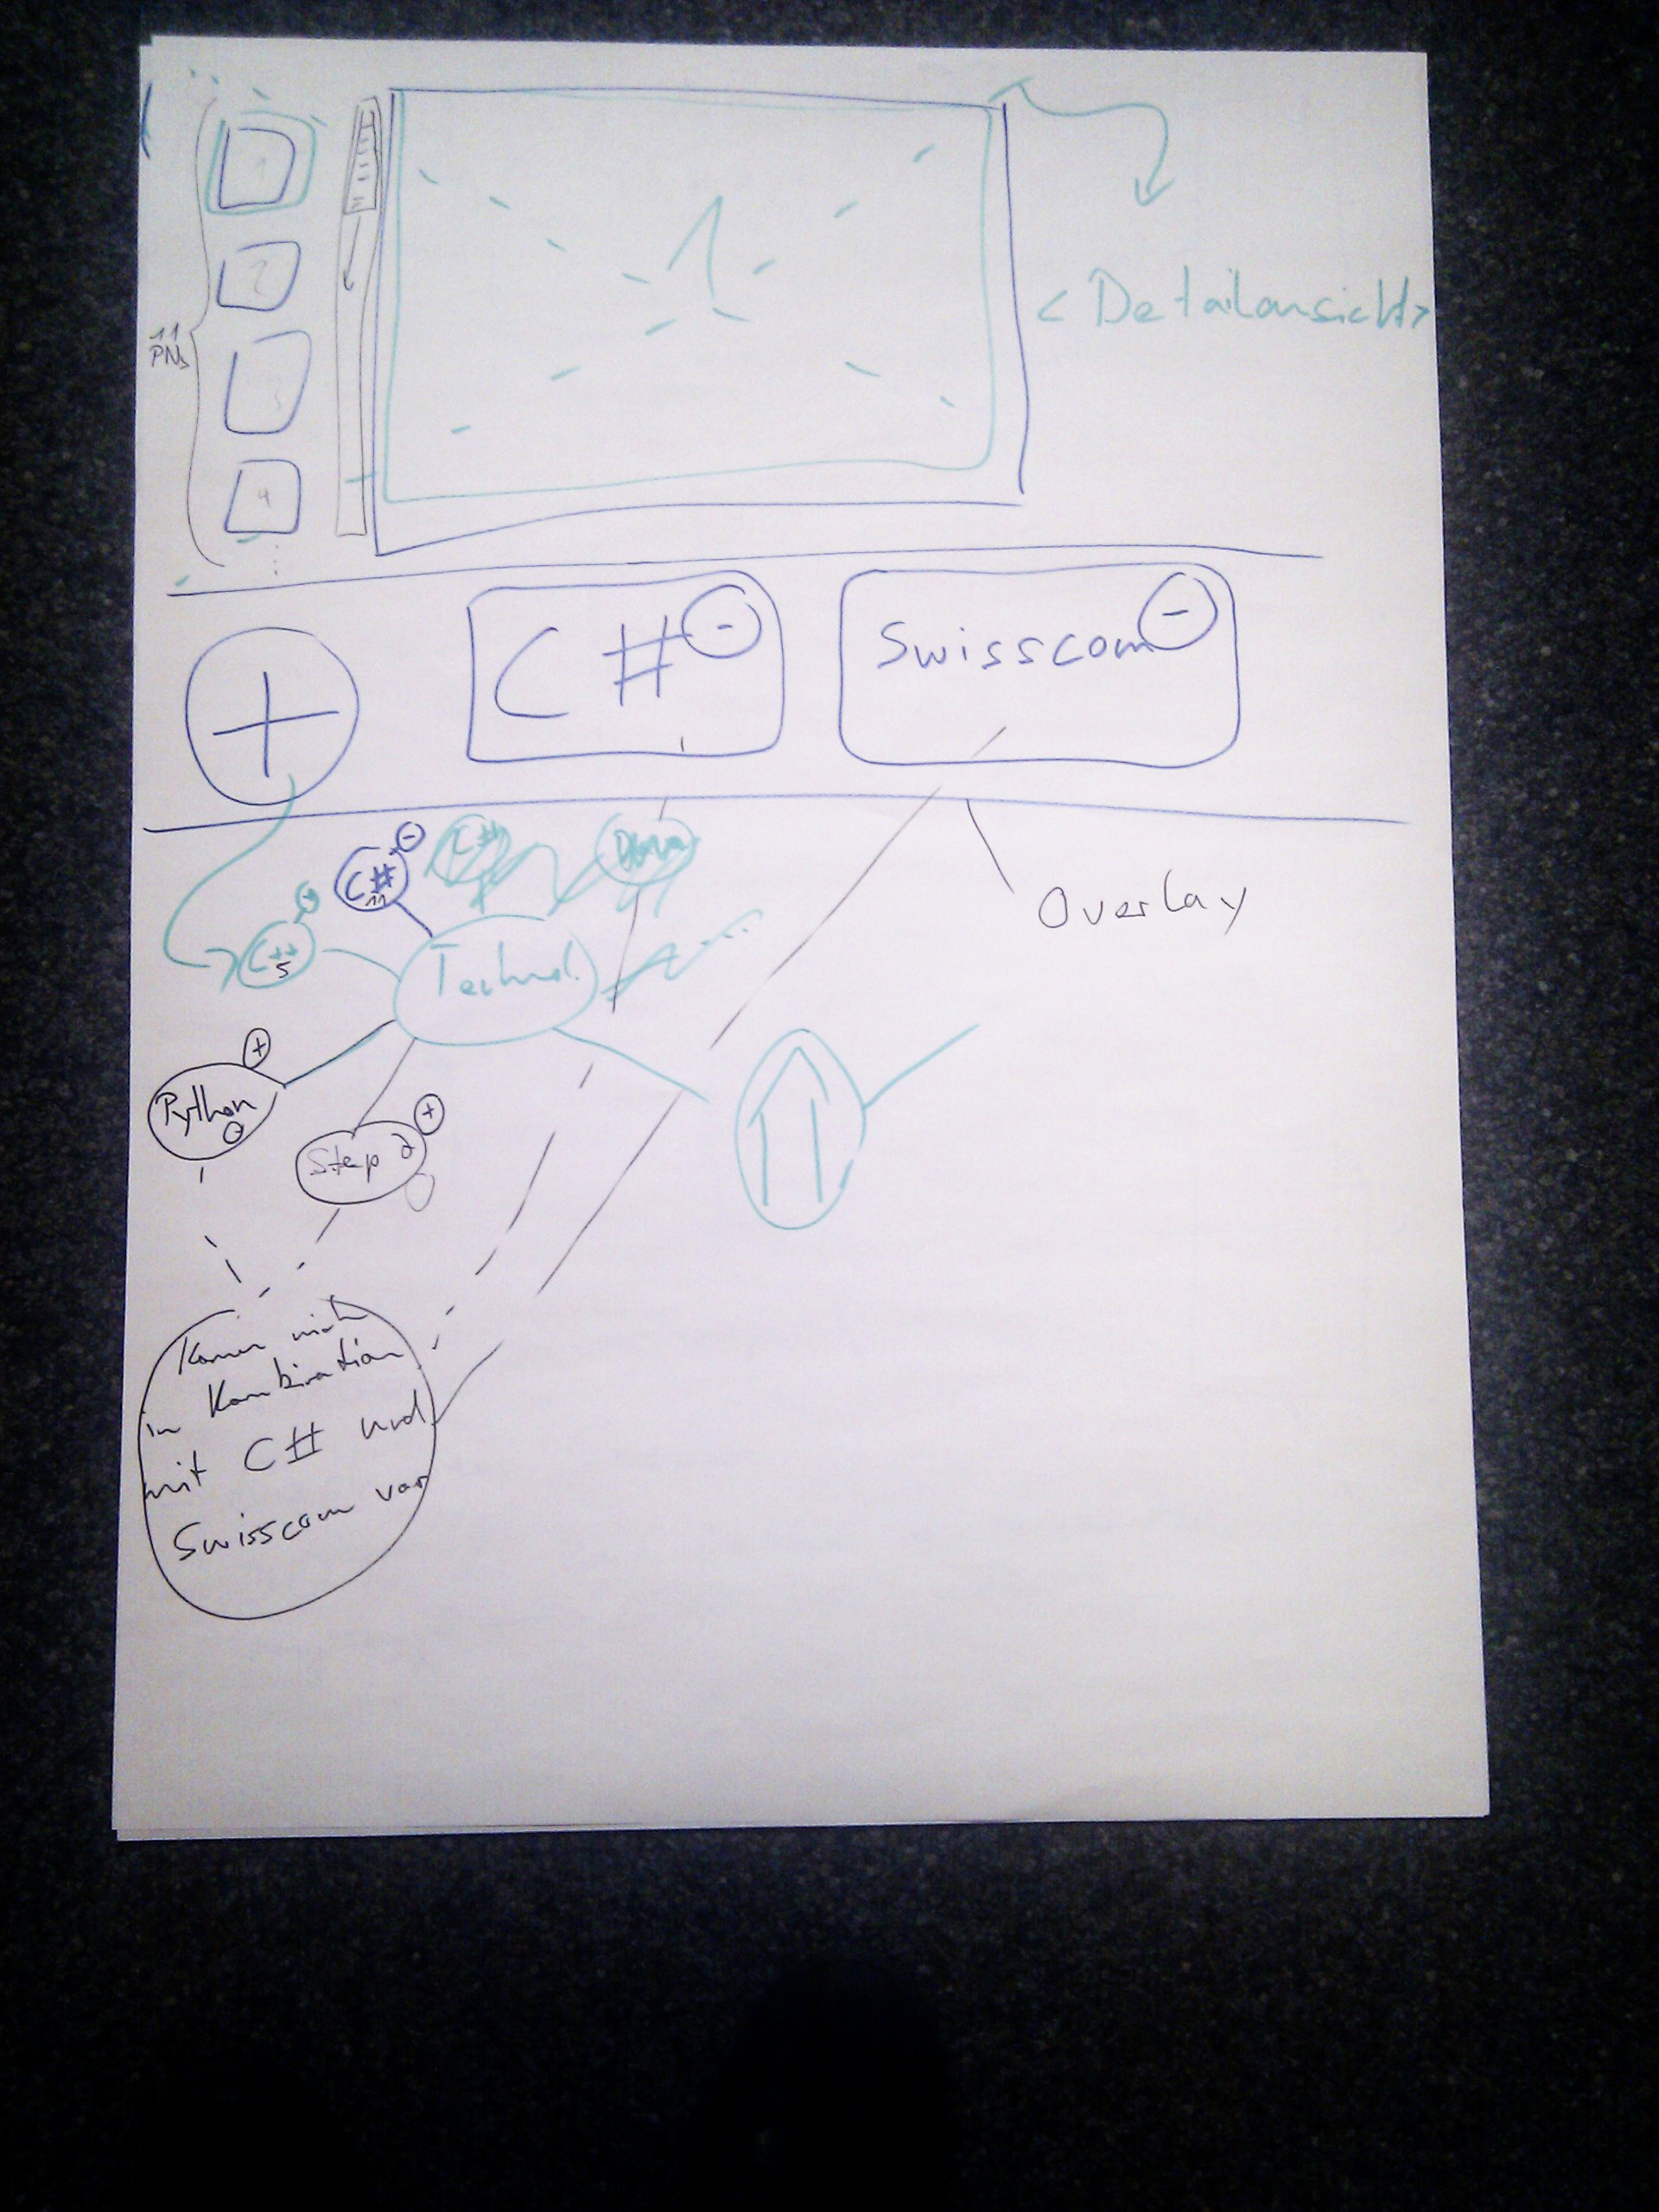 1
2
3
4
11
PNs
1
< Detailansicht >
+
C#
-
Swisscom
-
Overlay
C#
11
-
C#
C++
5
Technol.
Python
0
+
+
Kamen nicht
in Kombination
mit C# und
Swisscom vor